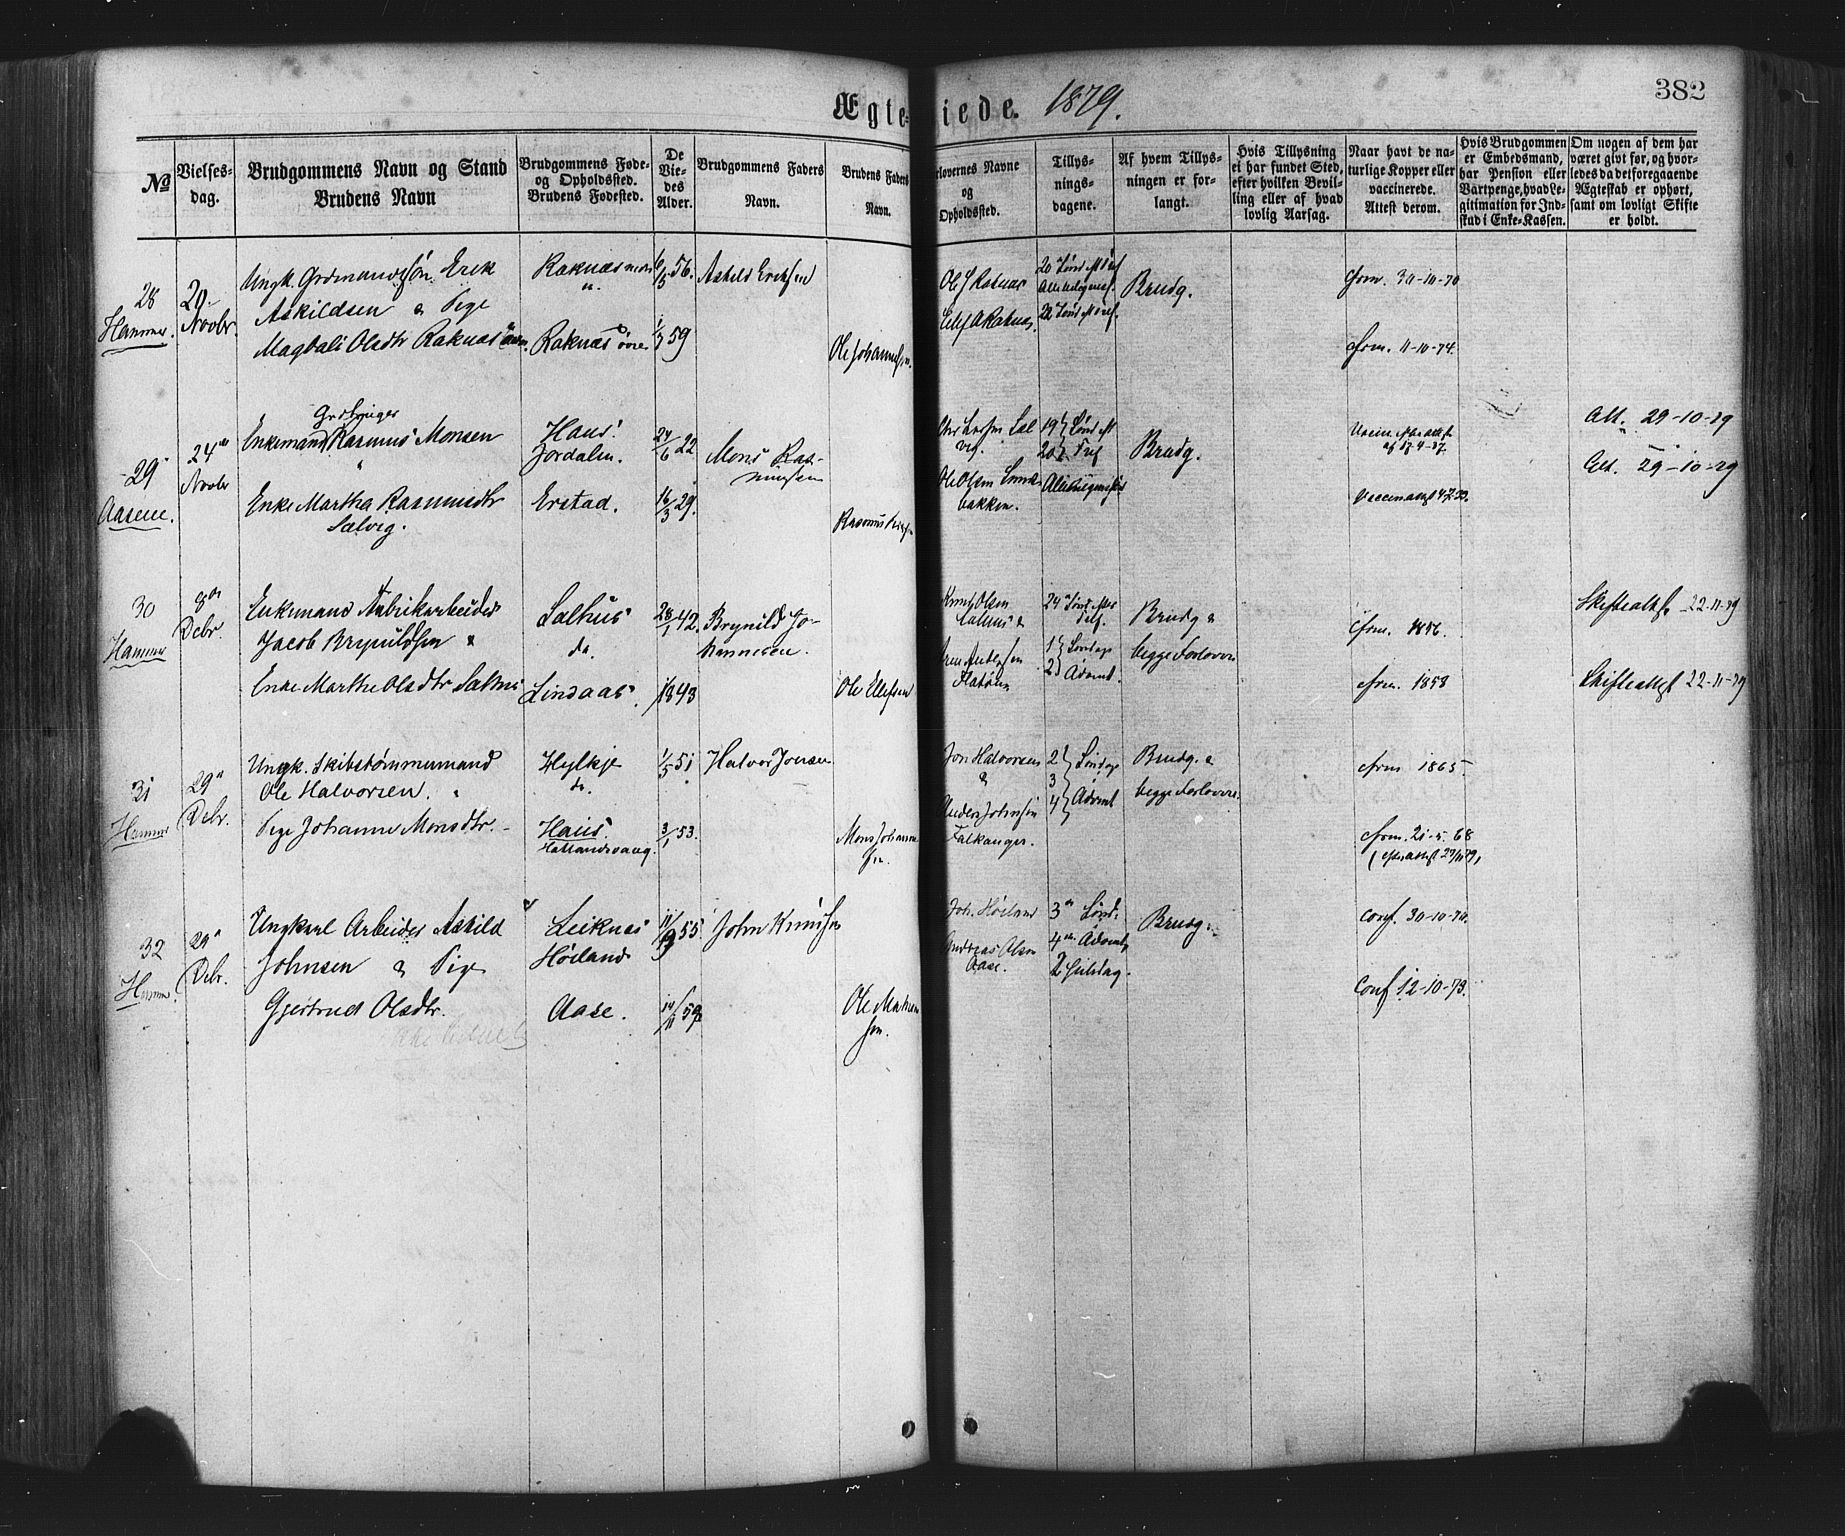 Ægte- iede. 1879.
382
No
Vielses-
dag.
Brudgommens Navn og Stand
Brudens Navn
Brudgommens Føde-
og Opholdssted.
Brudens Fødested.
De
Vie-
des
Alder.
Brudgommens Faders
Navn.
Brudens Faders
Navn.
orlovernes Navne
og
Opholdssted.
Tillys-
nings-
dagene.
Af hvem Tillys-
ningen er for-
langt.
Hvis Tillysning
ei har fundet Sted,
efter hvilken Bevil-
ling eller af hvad
lovlig Aarsag.
Naar havt de na-
turlige Kopper eller
vaccinerede.
Attest derom.
Hvis Brudgommen
er Embedsmand,
har Pension eller
Vartpenge, hvad Le-
gitimation for Ind-
skud i Enke-Kassen.
Om nogen af dem har
været givt før, og hvor-
ledes da det foregaaende
Ægteskab er ophørt,
samt om lovligt Skifte
er holdt.
28
Hammer.
29
Novbr.
Ungk. Grdmandssøn Erik
Askildsen & Pige
Magdali Olsdtr Raknæs
Raknæs
"
Raknæs øvre
6/5 56.
1/7 59
Askild Eriksen
Ole Johannessen.
Ole J Raknæs
A Raknæs.
20 Sønd
22 Sønd
Brudg.
Cfrm. 30-10-70
Cfrm. 11-10-74.
29
Aasene.
24
Novbr
Enkemand Rasmus Monsen
Enke Martha Rasmusdtr
Sælvig.
Haus.
Jordalen.
Erstad.
24/6 22
16/3 29.
Mons Ras-
mussen
Rasmus
Ole Olsen
bakken.
19 } Sønd
20 } Tref
Brudg.
Att. 29-10-79
Att. 29-10-79
30
Hammer
8de
Debr.
Enkemand Fabrikarbeider
Jacob Brynildsen &
Enke Marthe Olsdtr Salhus
Salhus
do.
Lindaas.
28/1 42.
43
Brynild Jo-
hannesen.
Ole Ellefsen
Knut Olsen
Salhus &
Andersen
Flatøen
24 Sønd
Tref.
1 } Søndag
2 } Advent.
Brudg &
begge Forlovere
Cfrm. 1856.
Cfrm. 1858
Skifteattst 22-11-79
Skifteattst 22-11-79
31
Hammer
29
Debr.
Ungk. Skibstømmermand
Ole Halvorsen.
Pige Johanne Monsdtr.
Hylkje
do.
Haus.
Hatlandsvaag.
1/5 51
3/1 53.
Halvor Jonsen
Mons Johanne-
sen.
Jon Halvorsen
&
Anders Johnsen
Falkanger.
2 } Søndag
3
4 } Advent
Brudg. &
begge Forlovere.
Cfrm 1865.
Cfrm. 21-5-68
32
Hammer.
29
Debr.
Ungkarl Arbeider Askild
Johnsen & Pige
Gjertrud Olsdtr.
Leiknes
Høiland
Aase.
55
59
John Knudsen
Ole Mathias-
sen.
Joh. Høiland
Andreas Olsen
Aase.
3de Sønd.
4de Advent
2 Juledag.
Brudg.
Conf. 30-10-70.
Conf 12-10-73.